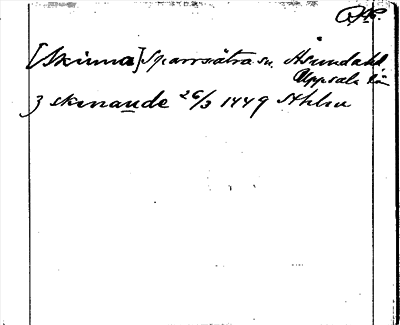 [Skinna] Sparrsätra sn. Åsundahd
Uppsala län
3 skinaude 26/3 1449 Sthlm